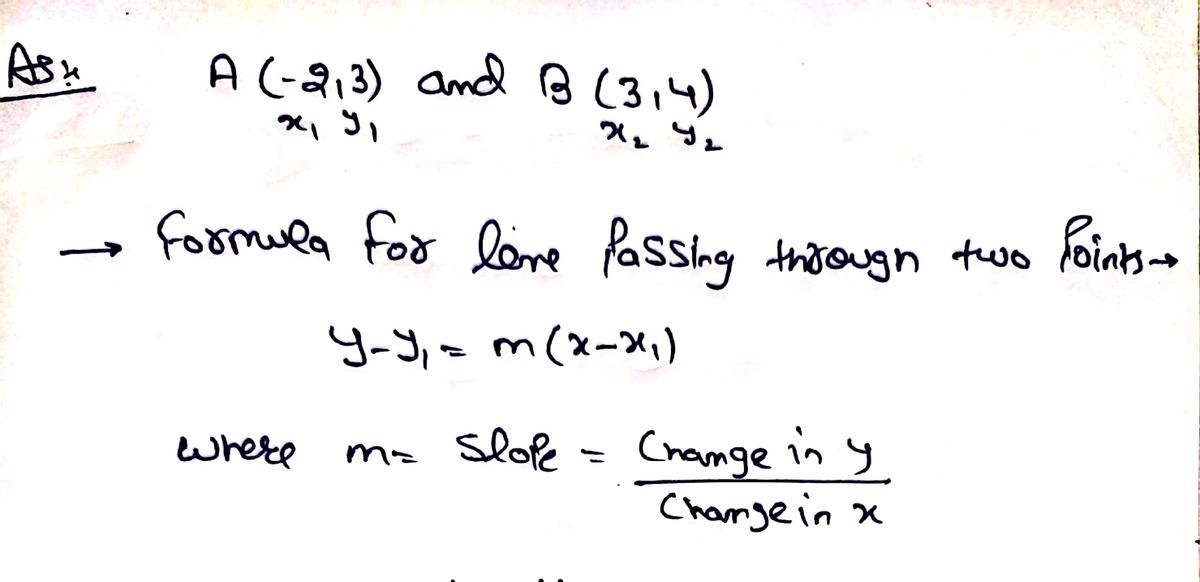 A (-2,3) and B (3,4)
x₁ y₁ x₂ y₂
→ formula for line passing through two points→
y-y₁ = m(x-x₁)
where m= slope = Change in y
Change in x